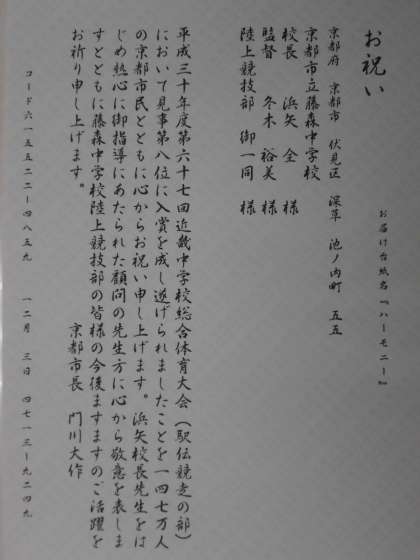 お届け台紙名『ハーモニー』
お祝い
京都府 京都市 伏見区 深草 池ノ内町 五五
京都市立藤森中学校
校長 浜矢 全 様
監督 冬木 裕美 様
陸上競技部 御一同 様
平成三十年度第六十七回近畿中学校総合体育大会(駅伝競走の部)
において見事第八位に入賞を成し遂げられましたことを一四七万人
の京都市民とともに心からお祝い申し上げます。浜矢校長先生をは
じめ熱心に御指導にあたられた顧問の先生方に心から敬意を表しま
すとともに藤森中学校陸上競技部の皆様の今後ますますのご活躍を
お祈り申し上げます。
京都市長 門川大作
コード六一五五二二ー四八五九 一二月 三日 四七一三ー九二四九